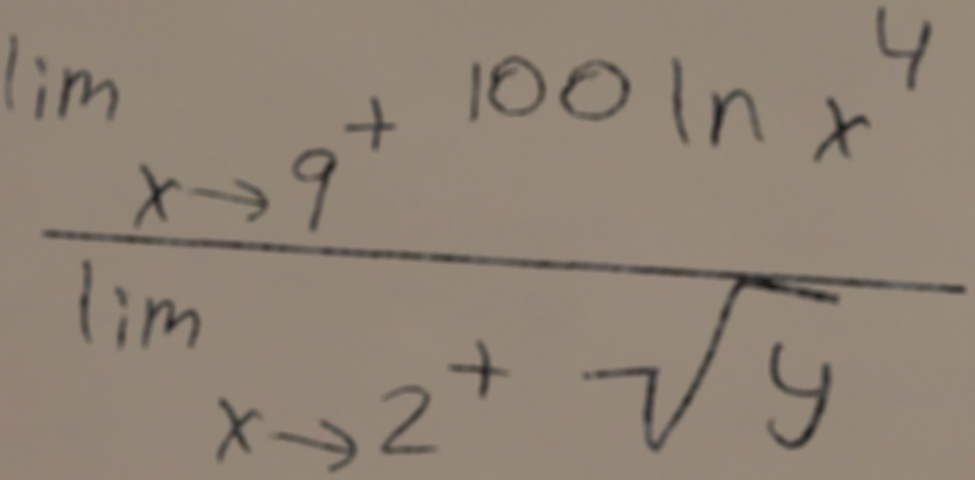 lim x→9⁺ 100 ln x⁴
lim x→2⁺ √y